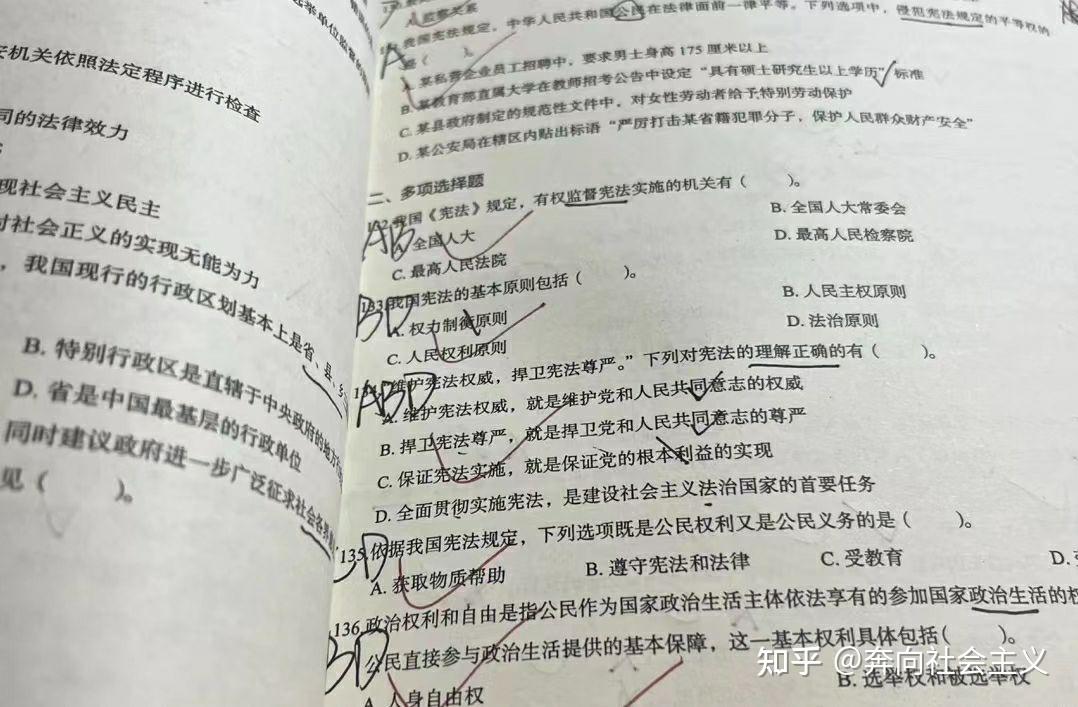 选举单位监督的
关机关依照法定程序进行检查
同的法律效力
现社会主义民主
对社会正义的实现无能为力
，我国现行的行政区划基本上是省、县、乡
B. 特别行政区是直辖于中央政府的地方
D. 省是中国最基层的行政单位
同时建议政府进一步广泛征求社会各界
见（ ）。
A. 监察关系
我国宪法规定，中华人民共和国公民在法律面前一律平等。下列选项中，侵犯宪法规定的平等权的
是（ ）。
A
A. 某私营企业员工招聘中，要求男士身高 175 厘米以上
B. 某教育部直属大学在教师招考公告中设定“具有硕士研究生以上学历”标准
C. 某县政府制定的规范性文件中，对女性劳动者给予特别劳动保护
D. 某公安局在辖区内贴出标语“严厉打击某省籍犯罪分子，保护人民群众财产安全”
二、多项选择题
132.我国《宪法》规定，有权监督宪法实施的机关有（ ）。
AB
A. 全国人大
B. 全国人大常委会
C. 最高人民法院
D. 最高人民检察院
133.我国宪法的基本原则包括（ ）。
BD
A. 权力制衡原则
B. 人民主权原则
C. 人民权利原则
D. 法治原则
134.“维护宪法权威，捍卫宪法尊严。”下列对宪法的理解正确的有（ ）。
ABD
A. 维护宪法权威，就是维护党和人民共同意志的权威
B. 捍卫宪法尊严，就是捍卫党和人民共同意志的尊严
C. 保证宪法实施，就是保证党的根本利益的实现
D. 全面贯彻实施宪法，是建设社会主义法治国家的首要任务
135.依据我国宪法规定，下列选项既是公民权利又是公民义务的是（ ）。
A. 获取物质帮助
B. 遵守宪法和法律
C. 受教育
D.
136.政治权利和自由是指公民作为国家政治生活主体依法享有的参加国家政治生活的权
公民直接参与政治生活提供的基本保障，这一基本权利具体包括（ ）。
BD
A. 人身自由权
B. 选举权和被选举权
知乎 @奔向社会主义